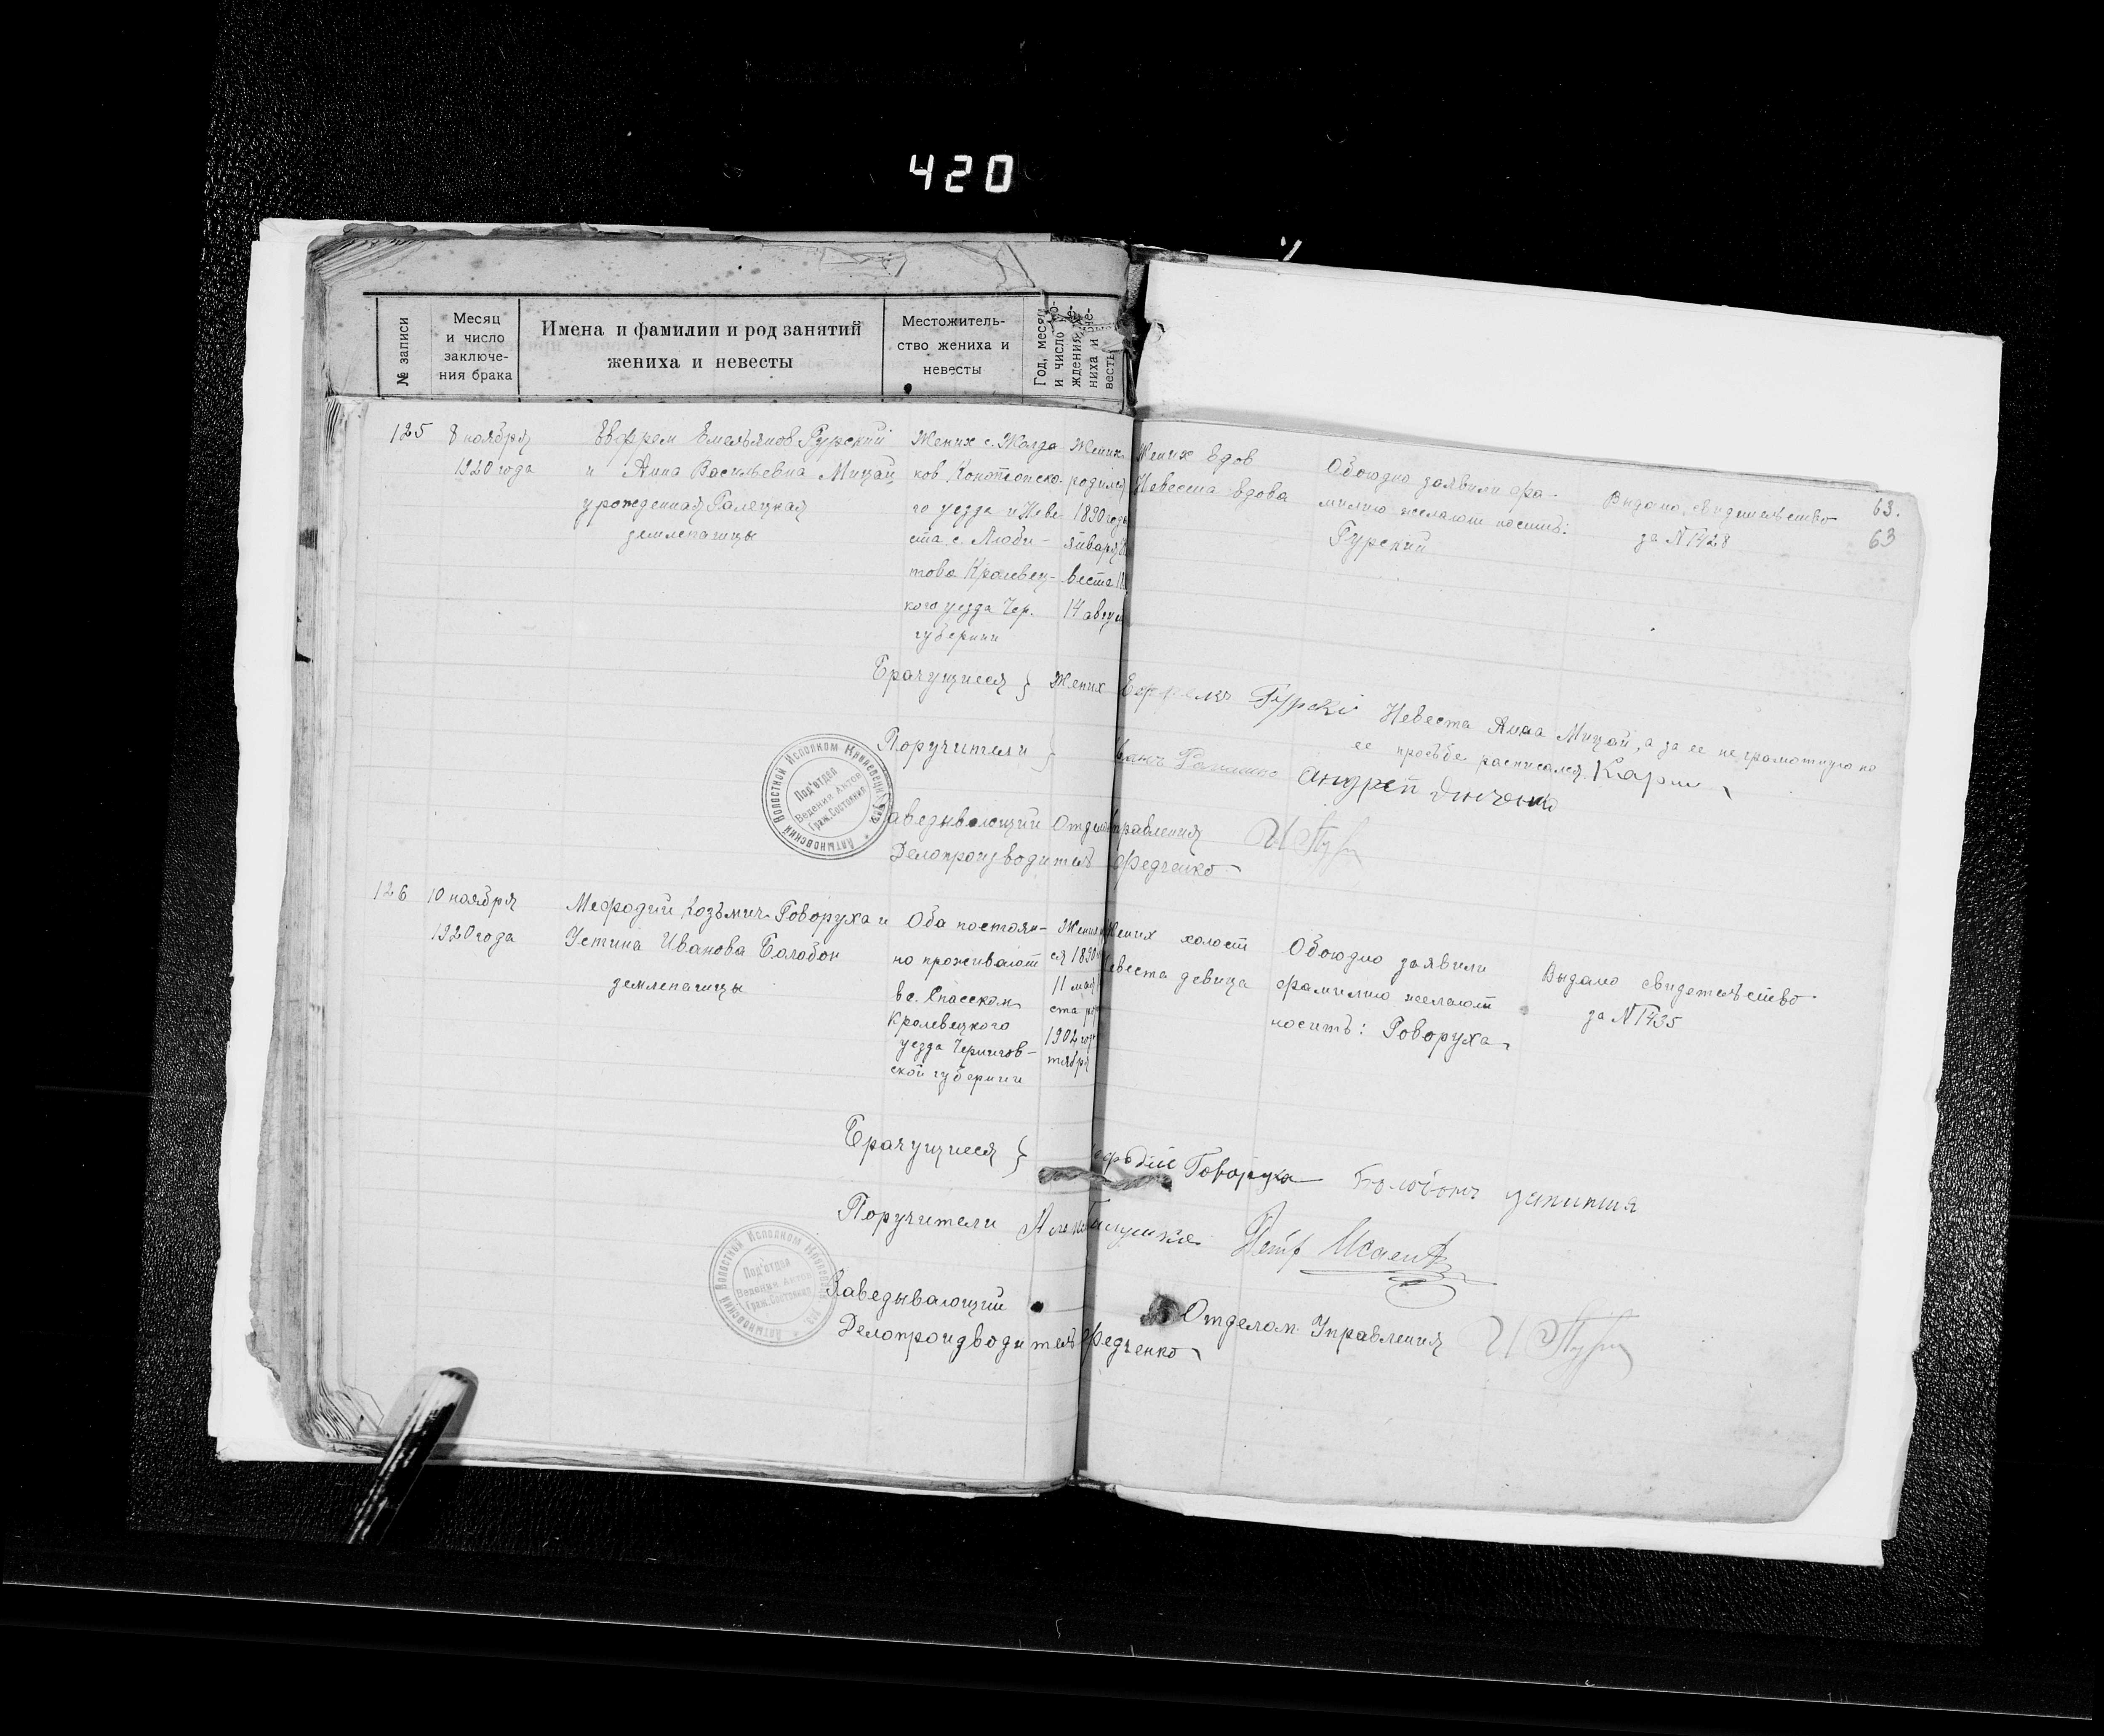 420
№ записи
Месяц
и число
заключе-
ния брака
Имена и фамилии и род занятий
жениха и невесты
Местожитель-
ство жениха и
невесты
Год, месяц
и число
ждения
ниха и
весты
125
8 ноября
1920 года
Ефрем Емельянов Гурский
и Анна Васильевна Мицай
урожденная Галецкая
землепашцы
Жених с. Жолда
ков Конотопско-
го уезда и Неве-
ста с. Люби-
това Кролевец-
кого уезда Чер.
губернии
Жених
родился
1890 года
января
веста
14 август
Жених вдов
Невеста вдова
Обоюдно заявили фа-
милию желают носить:
Гурский
Выдано свидетельство
за № 1428
63.
63
Брачущиеся } Жених Гурскі Невеста Анна Мицай, а за ее не грамотную по
ее просьбе расписался
Поручители } Андрей
Заведывающий Отделом Управления
Делопроизводитель Федченко
Алтыновский Волостной Исполком Кролевецк. уез.
Под'отдел
Ведения Актов
Граж. Состояния
126
10 ноября
1920 года
Мефодий Козьмич Говоруха и
Устина Иванова Болобон
землепашцы
Оба постоян-
но проживают
в с. Спасском
Кролевецкого
уезда Чернигов-
ской губернии
Жених
ся 1890
11 мая
ста
1902 год
тября
Жених холост
Невеста девица
Обоюдно заявили
фамилию желают
носить: Говоруха
Выдано свидетельство
за № 1435
Брачущиеся } Говоруха Болобонъ
Поручители Петр
Алтыновский Волостной Исполком Кролевецк. уез.
Под'отдел
Ведения Актов
Граж. Состояния
Заведывающий Отделом Управления
Делопроизводитель Федченко